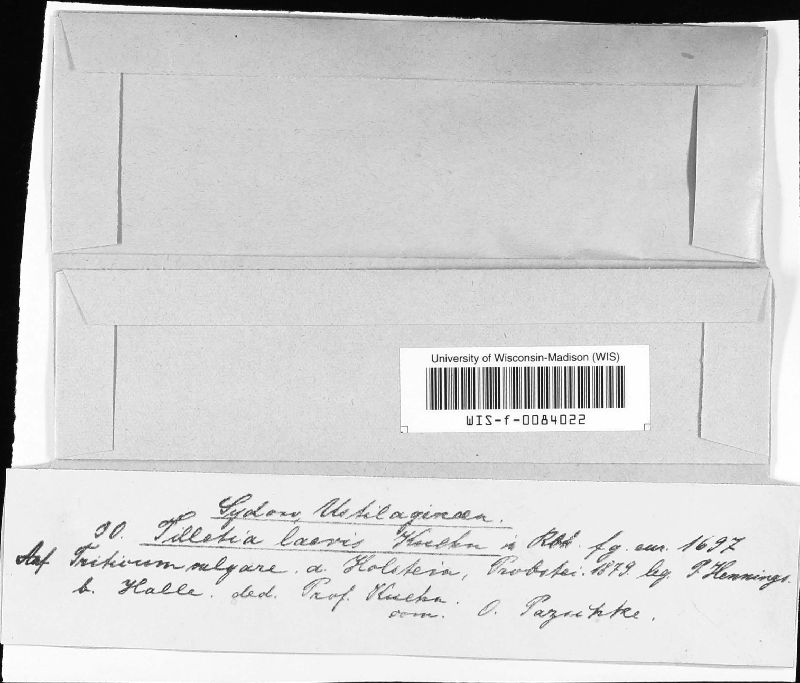 University of Wisconsin-Madison (WIS)
WIS-f-0084022
Sydow, Ustilagineen.
30. Tilletia laevis Kuehn in Rbh. fg. eur. 1697
Auf Triticum vulgare. a. Holstein, Probstei. 1879. leg. P. Hennings.
b. Halle. ded. Prof. Kuehn.
com. O. Pazschke.